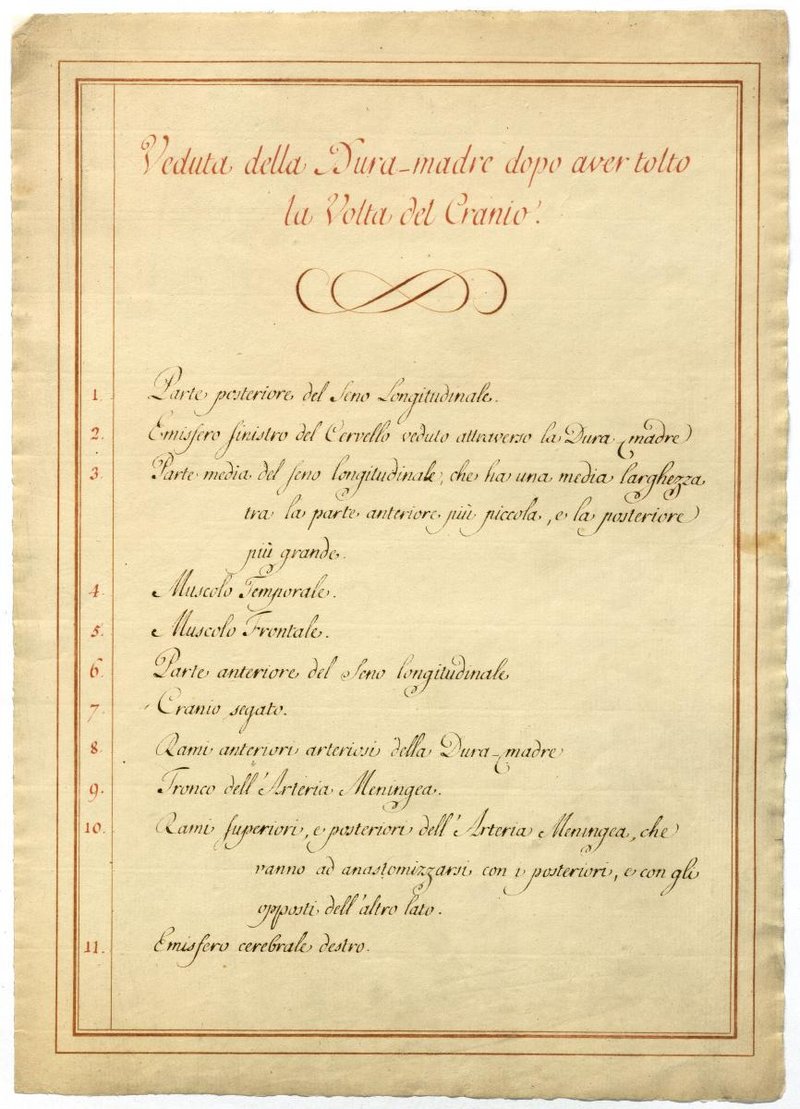 Veduta della Dura-madre dopo aver tolto
la Volta del Cranio.
1. Parte posteriore del Seno Longitudinale.
2. Emisfero sinistro del Cervello veduto attraverso la Dura-madre
3. Parte media del seno longitudinale, che ha una media larghezza
tra la parte anteriore più piccola, e la posteriore
più grande.
4. Muscolo Temporale.
5. Muscolo Frontale.
6. Parte anteriore del Seno longitudinale
7. Cranio segato.
8. Rami anteriori arteriosi della Dura-madre
9. Tronco dell'Arteria Meningea.
10. Rami superiori, e posteriori dell'Arteria Meningea, che
vanno ad anastomizzarsi con i posteriori, e con gli
opposti dell'altro lato.
11. Emisfero cerebrale destro.